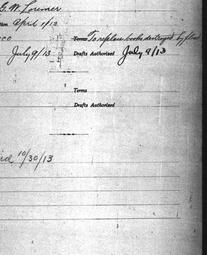 G. W. Lorimer
April 1/13
Terms To replace books destroyed by flood
July 9/13 Drafts Authorized July 9/13
Terms
Drafts Authorized
10/30/13